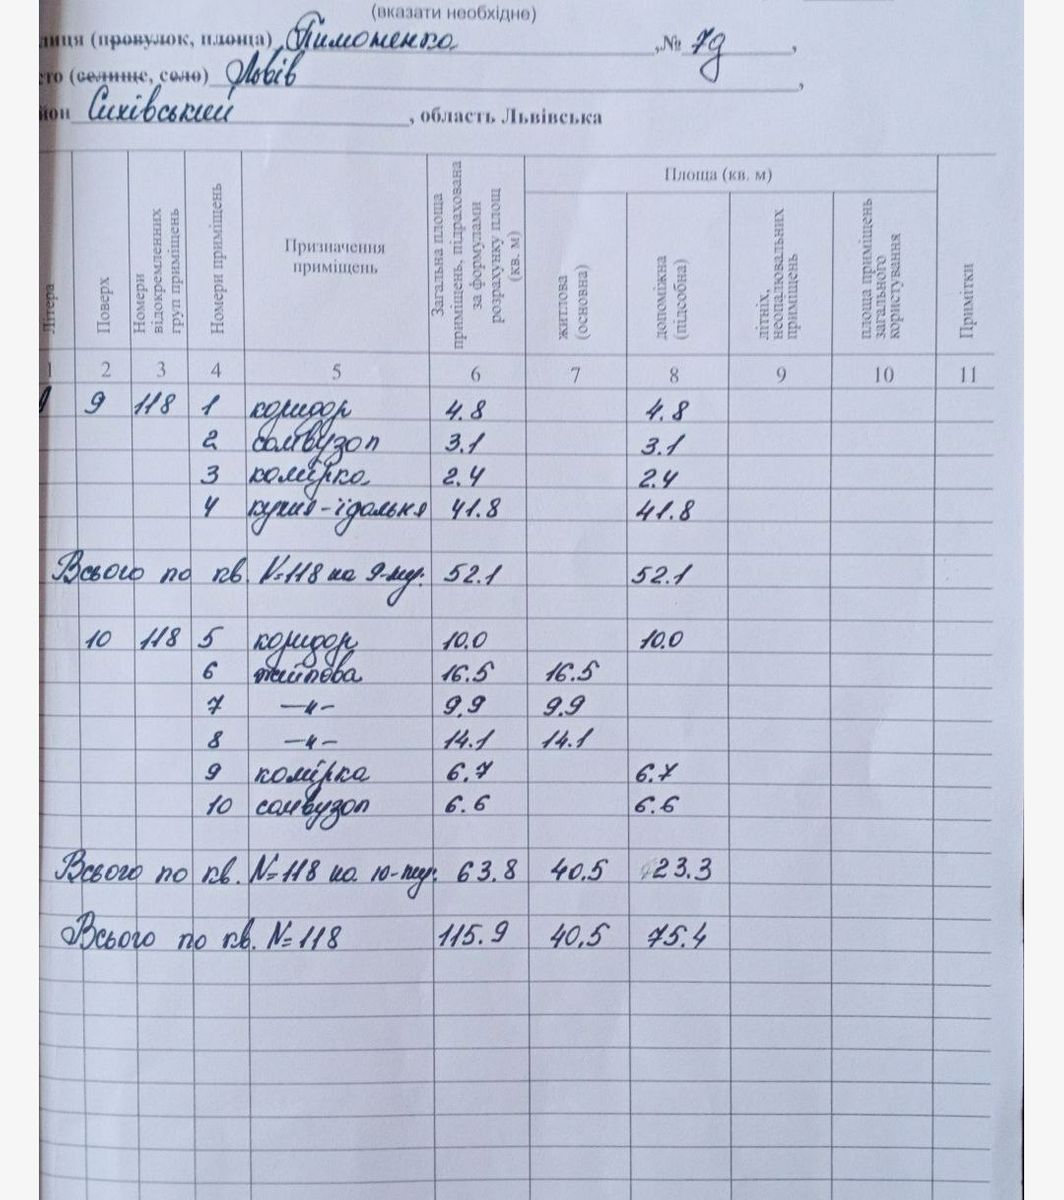 (вказати необхідне)
лиця (провулок, площа) Тимошенка, № 7д,
то (селище, село) Львів,
йон Сихівський, область Львівська
Літера
Поверх
Номери відокремленних груп приміщень
Номери приміщень
Призначення приміщень
Загальна площа приміщень, підрахована за формулами розрахунку площ (кв. м)
Площа (кв. м)
житлова (основна)
допоміжна (підсобна)
літніх, неопалювальних приміщень
площа приміщень загального користування
Примітки
1 2 3 4 5 6 7 8 9 10 11
9 118 1 коридор 4.8 4.8
2 санвузол 3.1 3.1
3 комірка 2.4 2.4
4 кухня-їдальня 41.8 41.8
Всього по кв. №118 на 9-му: 52.1 52.1
10 118 5 коридор 10.0 10.0
6 житлова 16.5 16.5
7 –„– 9.9 9.9
8 –„– 14.1 14.1
9 комірка 6.7 6.7
10 санвузол 6.6 6.6
Всього по кв. №118 на 10-му: 63.8 40.5 23.3
Всього по кв. №118 115.9 40,5 75.4